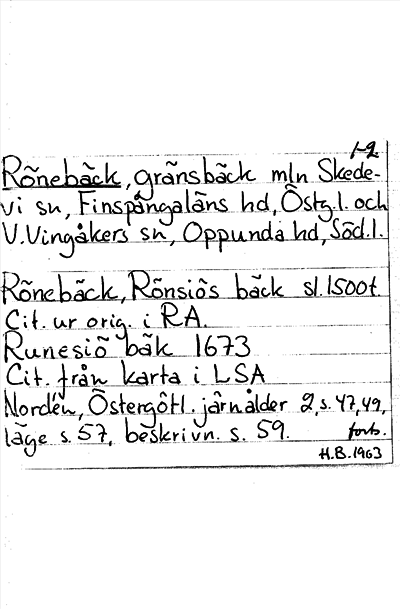 1-2
Rönebäck, gränsbäck mln Skede-
vi sn, Finspångaläns hd, Östg.l. och
V.Vingåkers sn, Oppunda hd, Söd.l.
Rönebäck, Rönsiös bäck sl.1500t.
Cit. ur orig. i RA.
Runesiö bäk 1673
Cit. från karta i LSA
Nordén, Östergötl. järnålder 2, s. 47, 49,
läge s. 57, beskrivn. s. 59. forts.
H.B. 1963